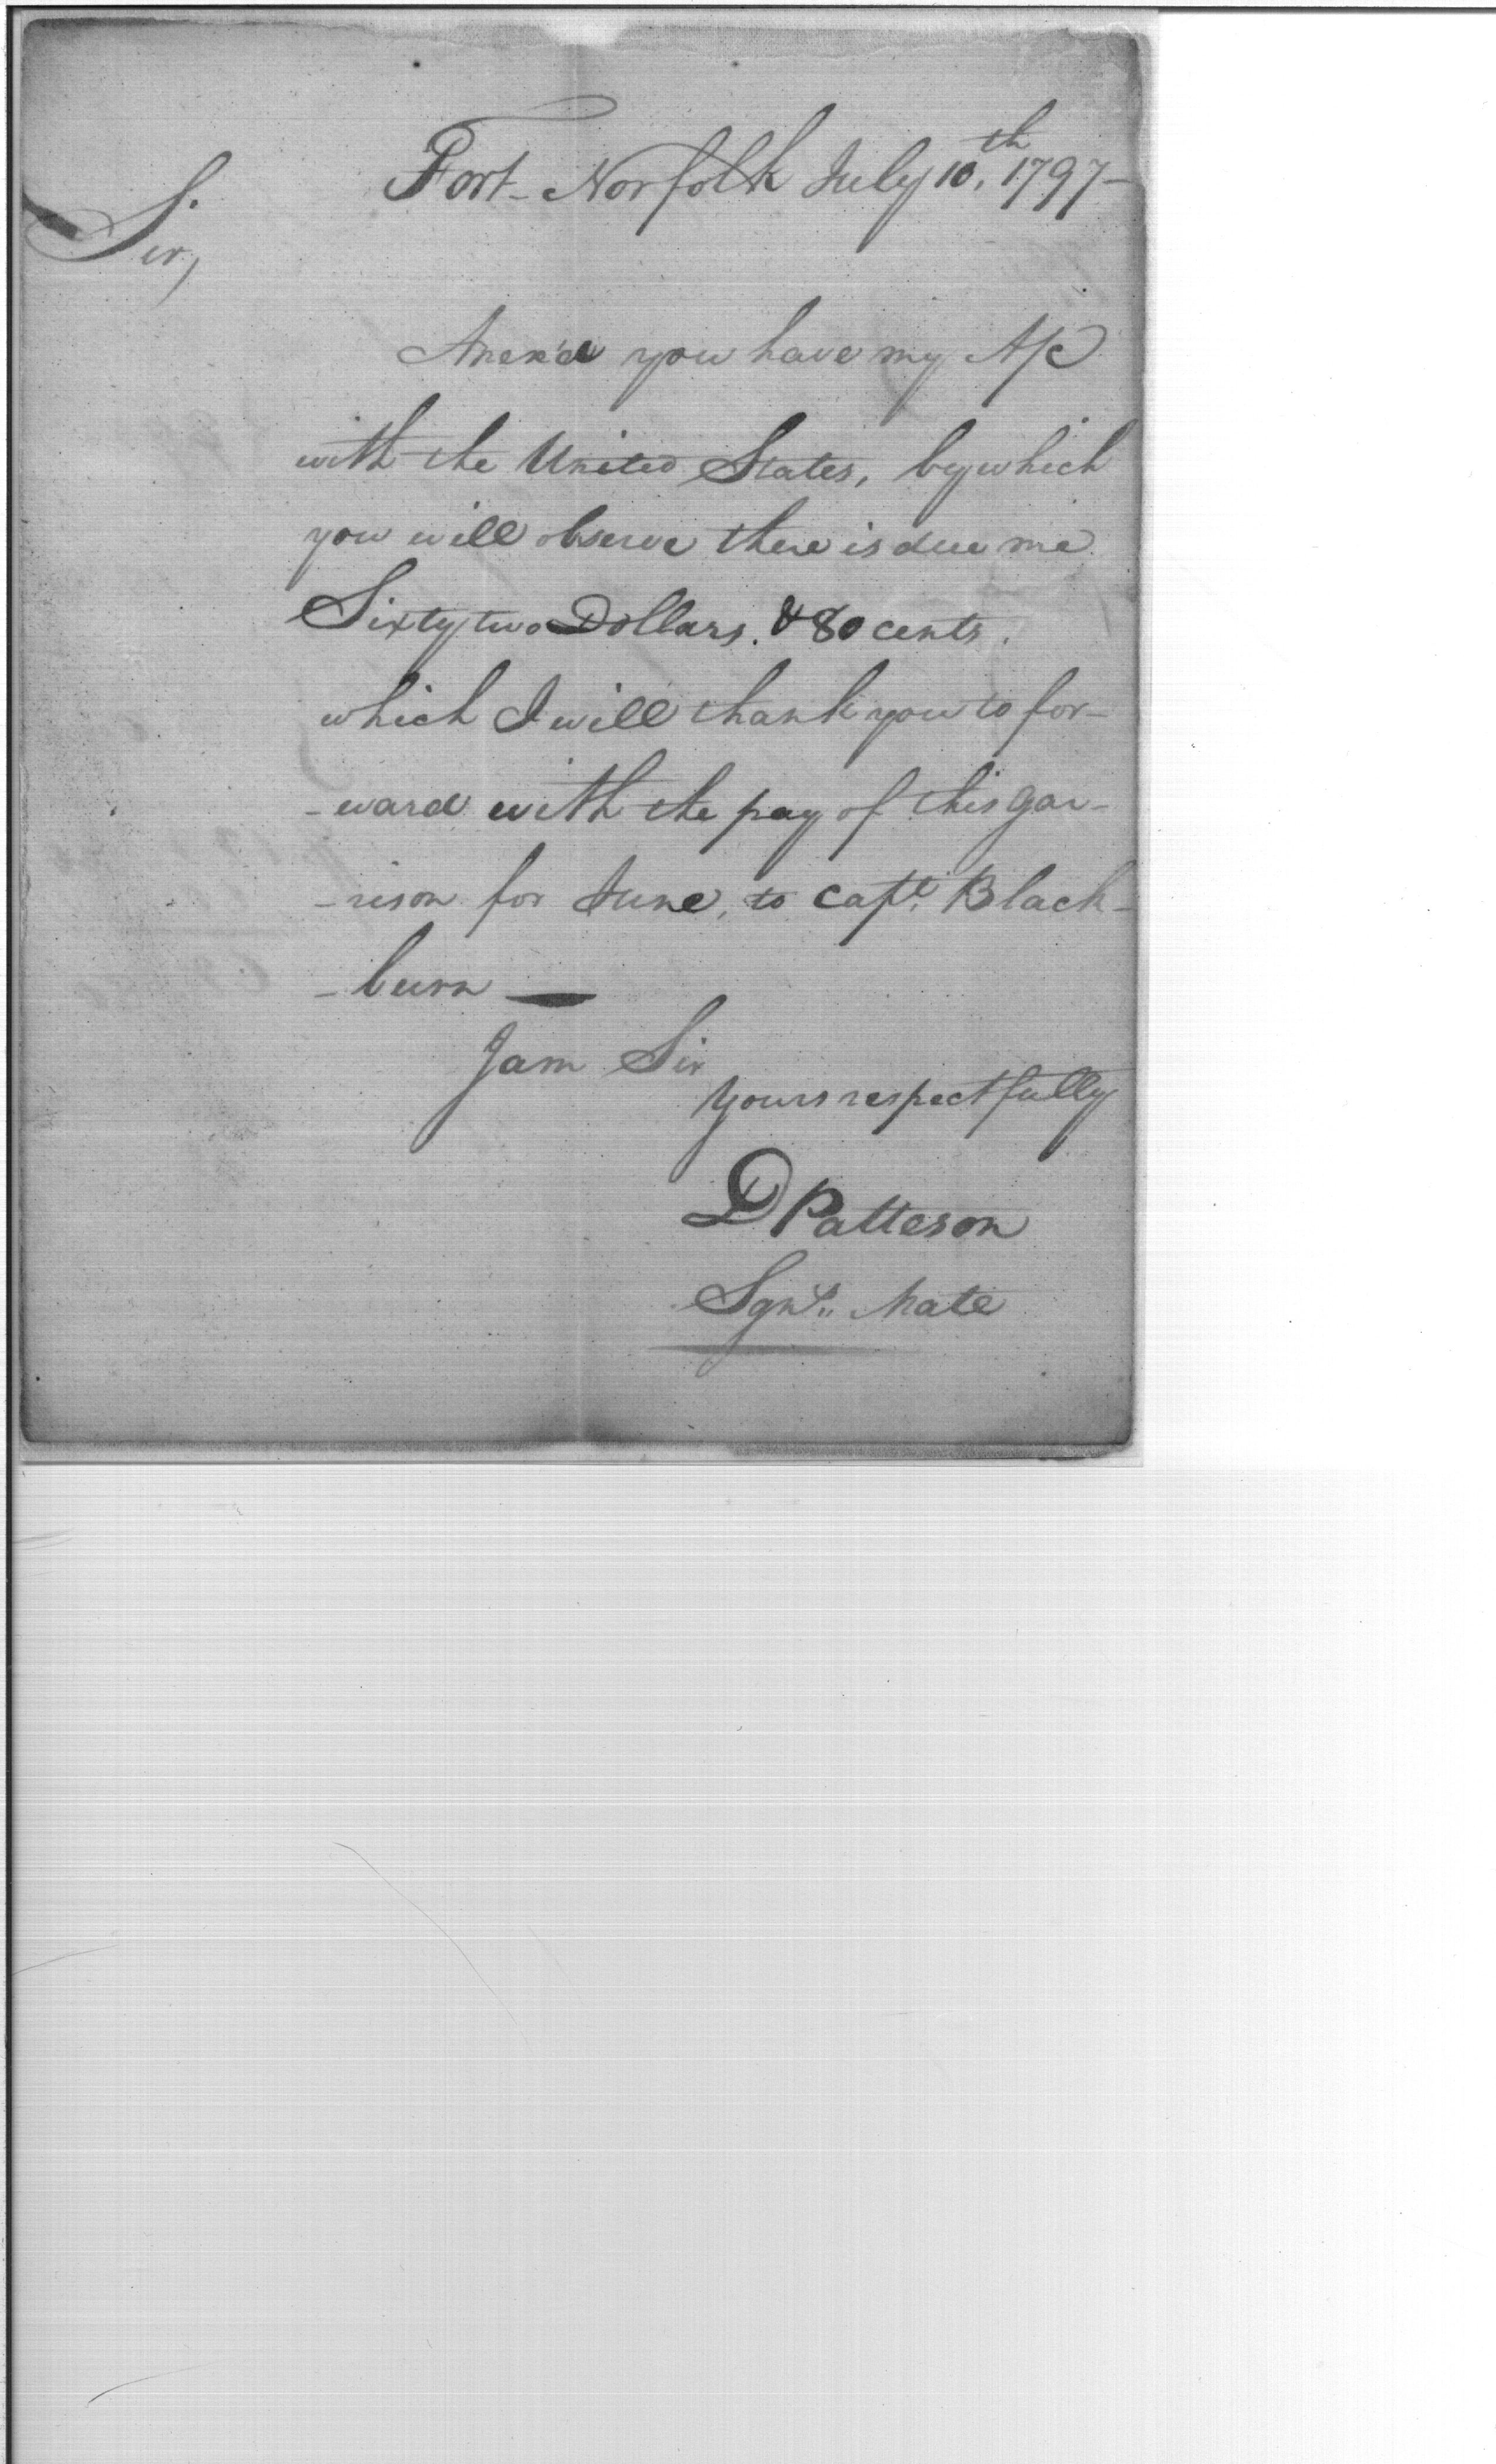 Fort Norfolk July 10th, 1797-
Sir,
Anex'd you have my A/C
with the United States, by which
you will observe there is due me
Sixty two Dollars. & 80 cents.
which I will thank you to for-
-ward with the pay of this gar-
-rison for June, to Capt. Black-
-burn —
I am Sir
Yours respectfully
D Patteson
Sgns. Mate